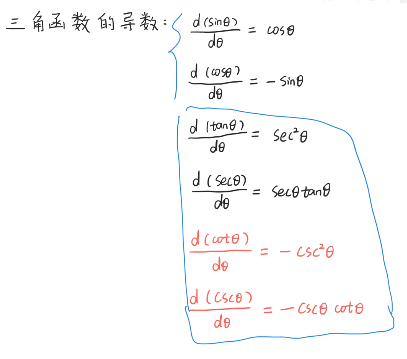 三角函数的导数: d(sinθ)/dθ = cosθ
d(cosθ)/dθ = -sinθ
d(tanθ)/dθ = sec²θ
d(secθ)/dθ = secθtanθ
d(cotθ)/dθ = -csc²θ
d(cscθ)/dθ = -cscθ cotθ